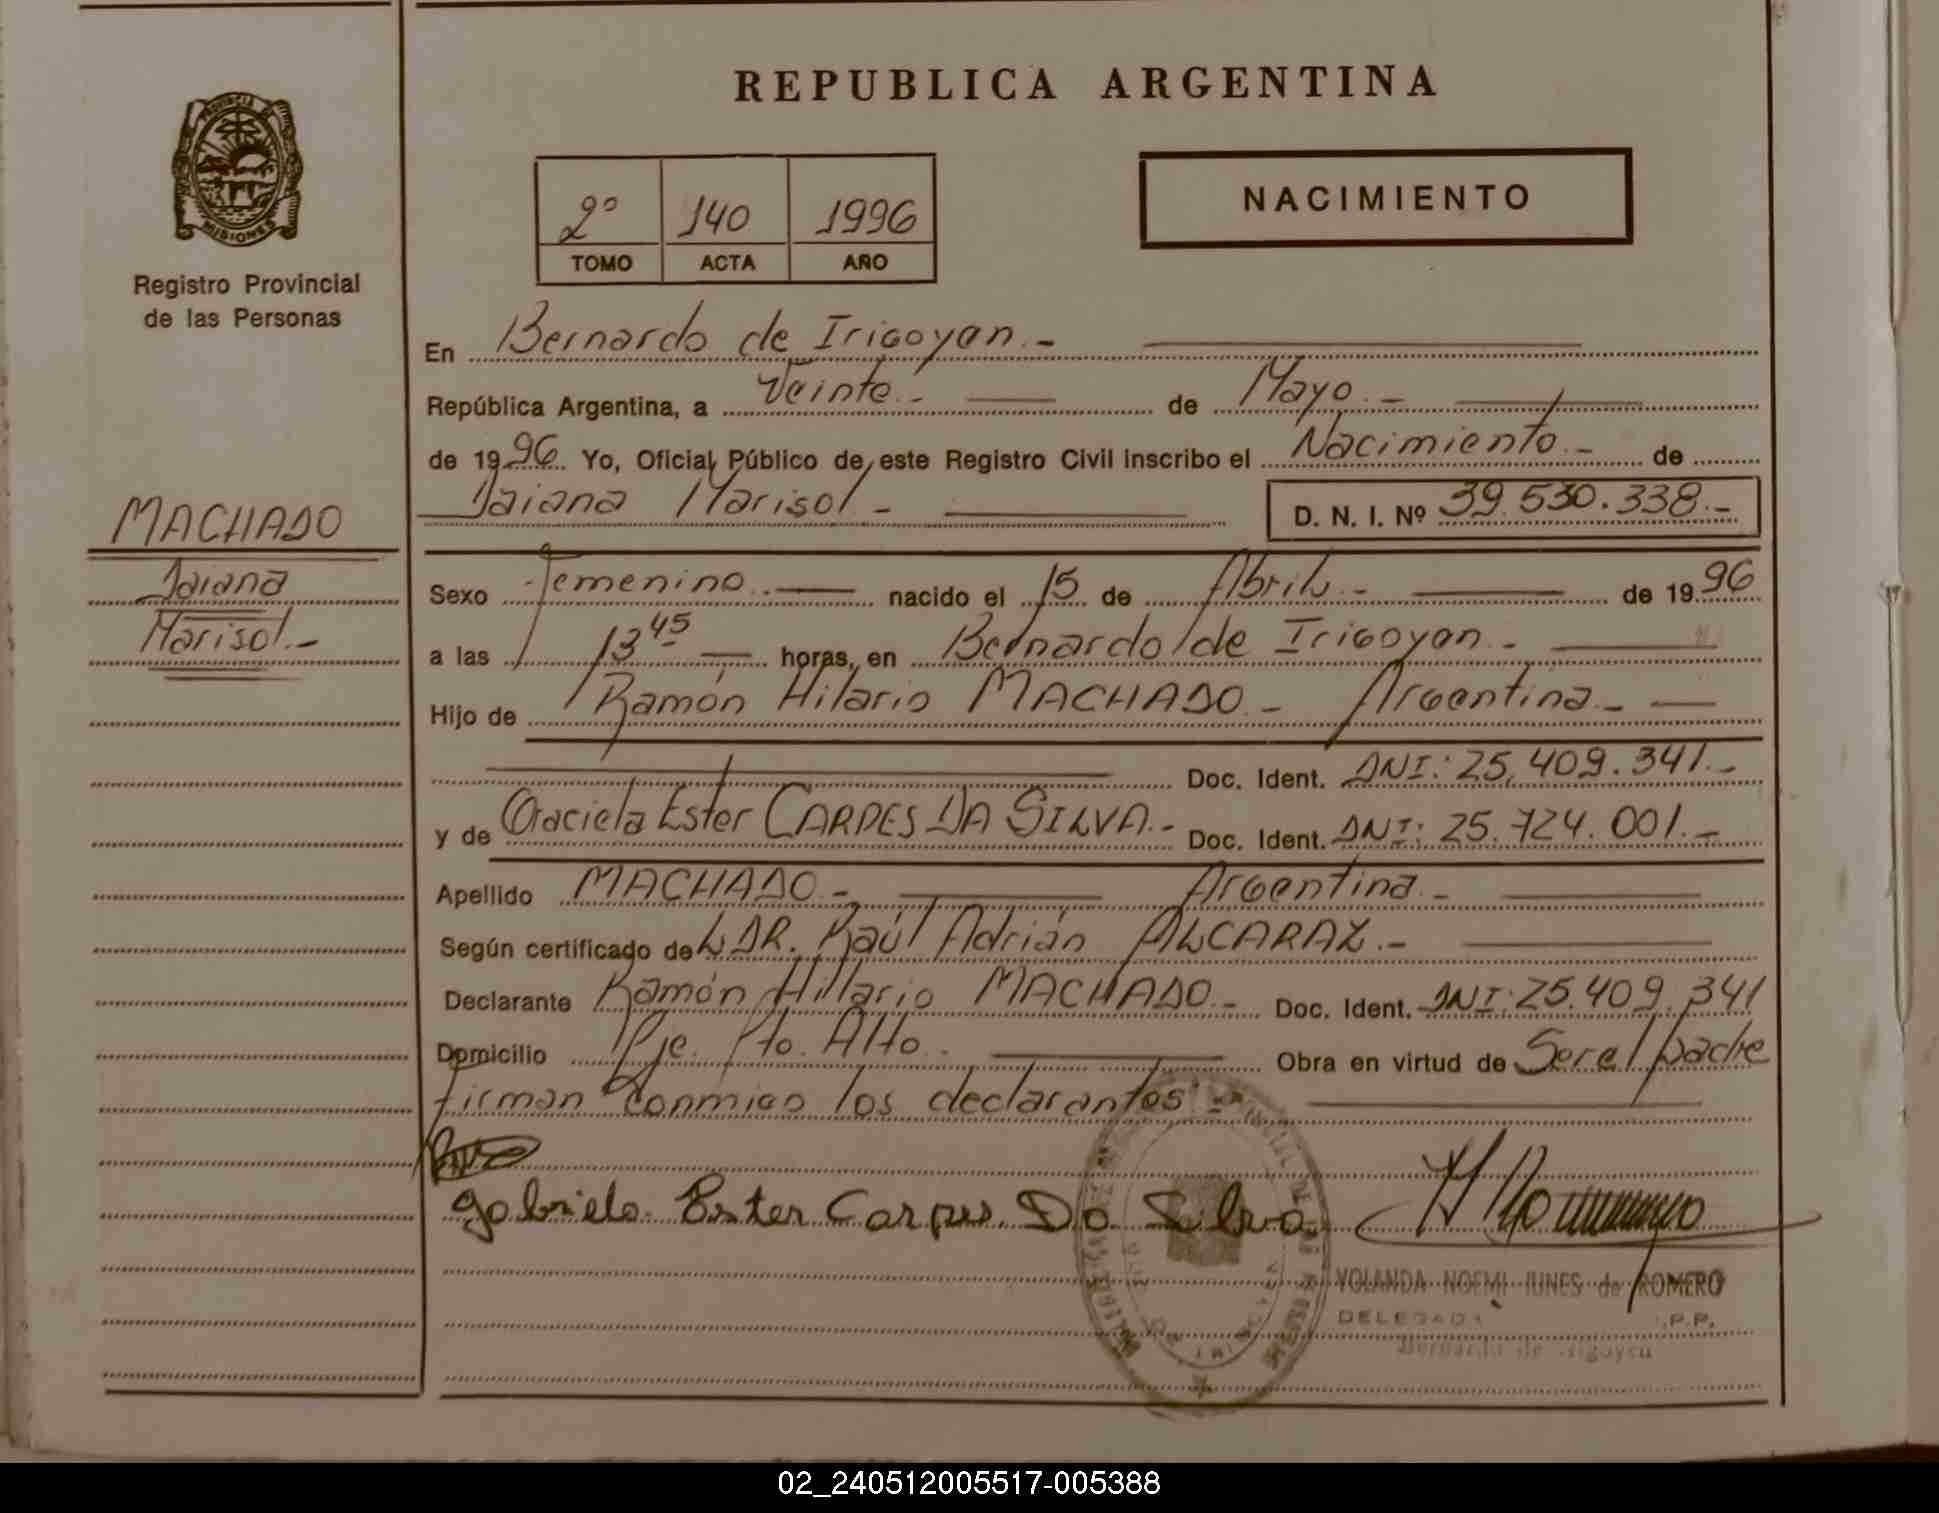 REPUBLICA ARGENTINA
PROVINCIA DE
MISIONES
Registro Provincial
de las Personas
2º 140 1996
TOMO ACTA AÑO
NACIMIENTO
En Bernardo de Irigoyen.-
República Argentina, a Veinte.- de Mayo.-
de 1996. Yo, Oficial Público de este Registro Civil inscribo el Nacimiento.- de
Daiana Marisol.- D. N. I. Nº 39.530.338.-
MACHADO
Daiana
Marisol.-
Sexo Femenino.- nacido el 15 de Abril.- de 1996
a las 13 45 horas, en Bernardo de Irigoyen.-
Hijo de Ramón Hilario MACHADO.- Argentina.-
Doc. Ident. DNI: 25.409.341.-
y de Graciela Ester CARPES DA SILVA.- Doc. Ident. DNI: 25.724.001.-
Apellido MACHADO.- Argentina.-
Según certificado del DR. Raúl Adrián ALCARAZ.-
Declarante Ramón Hillario MACHADO.- Doc. Ident. DNI: 25.409.341
Domicilio Pje. Pto. Alto. Obra en virtud de Ser el padre
firman conmigo los declarantes.-
gabriela Ester Carpes Da Silva
YOLANDA NOEMI IUNES de ROMERO
DELEGADA .P.P.
Bernardo de Irigoyen
02_240512005517-005388